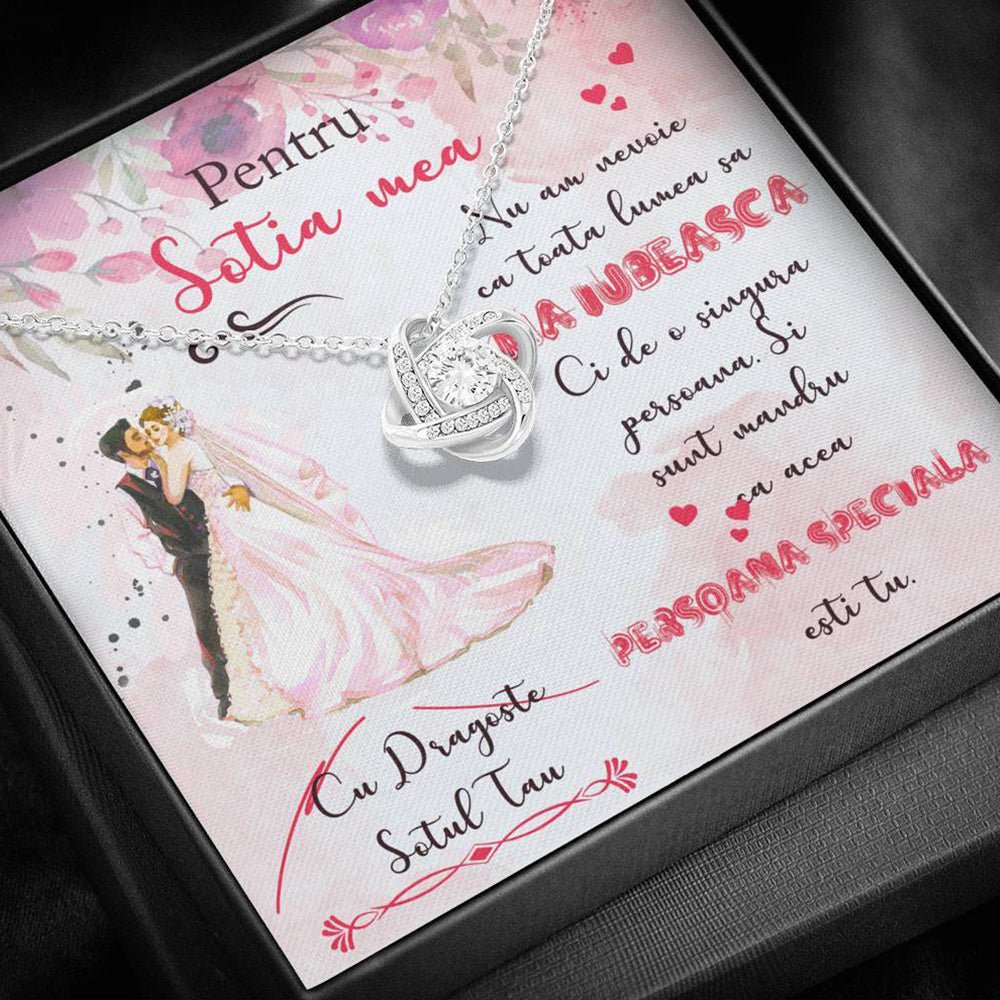 Pentru
Sotia mea
Nu am nevoie
ca toata lumea sa
IUBEASCA
Ci de o singura
persoana. Si
sunt mandru
ca acea
PERSOANA SPECIALA
esti tu.
Cu Dragoste
Sotul Tau